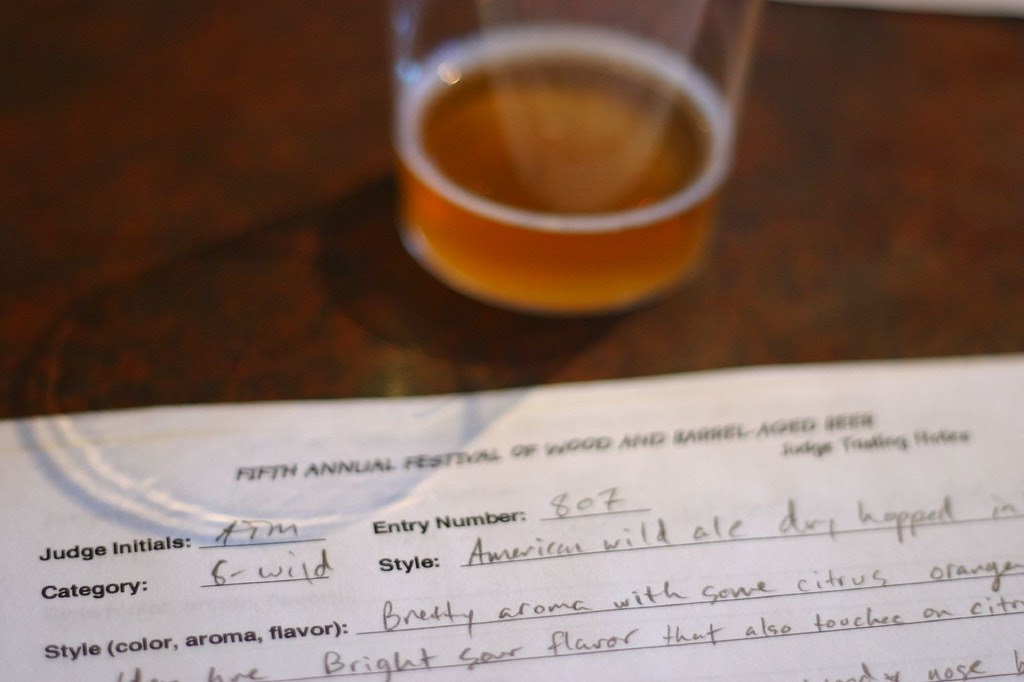 FIFTH ANNUAL FESTIVAL OF WOOD AND BARREL-AGED BEER
Judge Tasting Notes
Judge Initials: ATM Entry Number: 807
Category: 6-wild Style: American wild ale dry hopped in
Style (color, aroma, flavor): Bretty aroma with some citrus orange
Bright sour flavor that also touches on citr
nose b